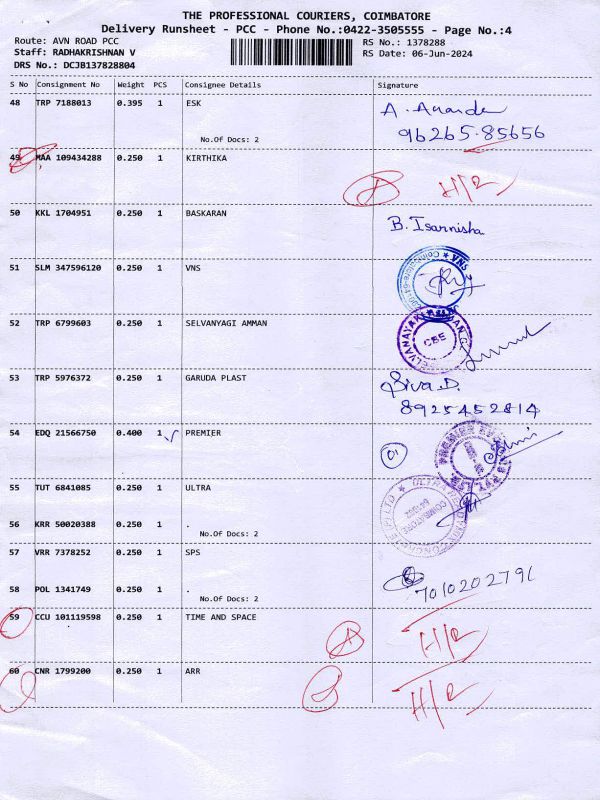 THE PROFESSIONAL COURIERS, COIMBATORE
Delivery Runsheet - PCC - Phone No.:0422-3505555 - Page No.:4
Route: AVN ROAD PCC RS No.: 1378288
Staff: RADHAKRISHNAN V RS Date: 06-Jun-2024
DRS No.: DCJB137828804
S No Consignment No Weight PCS Consignee Details Signature
48 TRP 7188013 0.395 1 ESK A. Ananda
No.Of Docs: 2 96265 85656
49 MAA 109434288 0.250 1 KIRTHIKA H/R
50 KKL 1704951 0.250 1 BASKARAN B. Isannisha
51 SLM 347596120 0.250 1 VNS VNS
52 TRP 6799603 0.250 1 SELVANYAGI AMMAN CBE
53 TRP 5976372 0.250 1 GARUDA PLAST Siva.D.
8925452814
54 EDQ 21566750 0.400 1 PREMIER 01 PREMIER
55 TUT 6841085 0.250 1 ULTRA ULTRA
56 KRR 50020388 0.250 1 . COIMBATORE
No.Of Docs: 2
57 VRR 7378252 0.250 1 SPS
58 POL 1341749 0.250 1 . 7010202791
No.Of Docs: 2
59 CCU 101119598 0.250 1 TIME AND SPACE H/R
60 CNR 1799200 0.250 1 ARR H/R